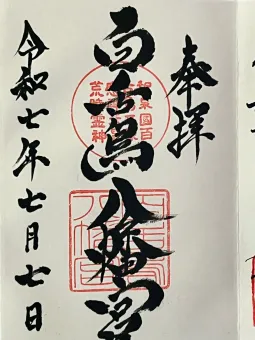 奉拝
百舌鳥八幡宮
令和七年七月七日